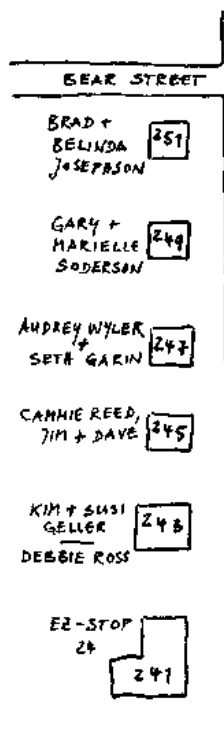 BEAR STREET
BRAD +
BELINDA
JOSEPHSON
251
GARY +
MARIELLE
SODERSON
249
AUDREY WYLER
+
SETH GARIN
247
CAMMIE REED,
JIM + DAVE
245
KIM + SUSI
GELLER
DEBBIE ROSS
243
EZ-STOP
24
241